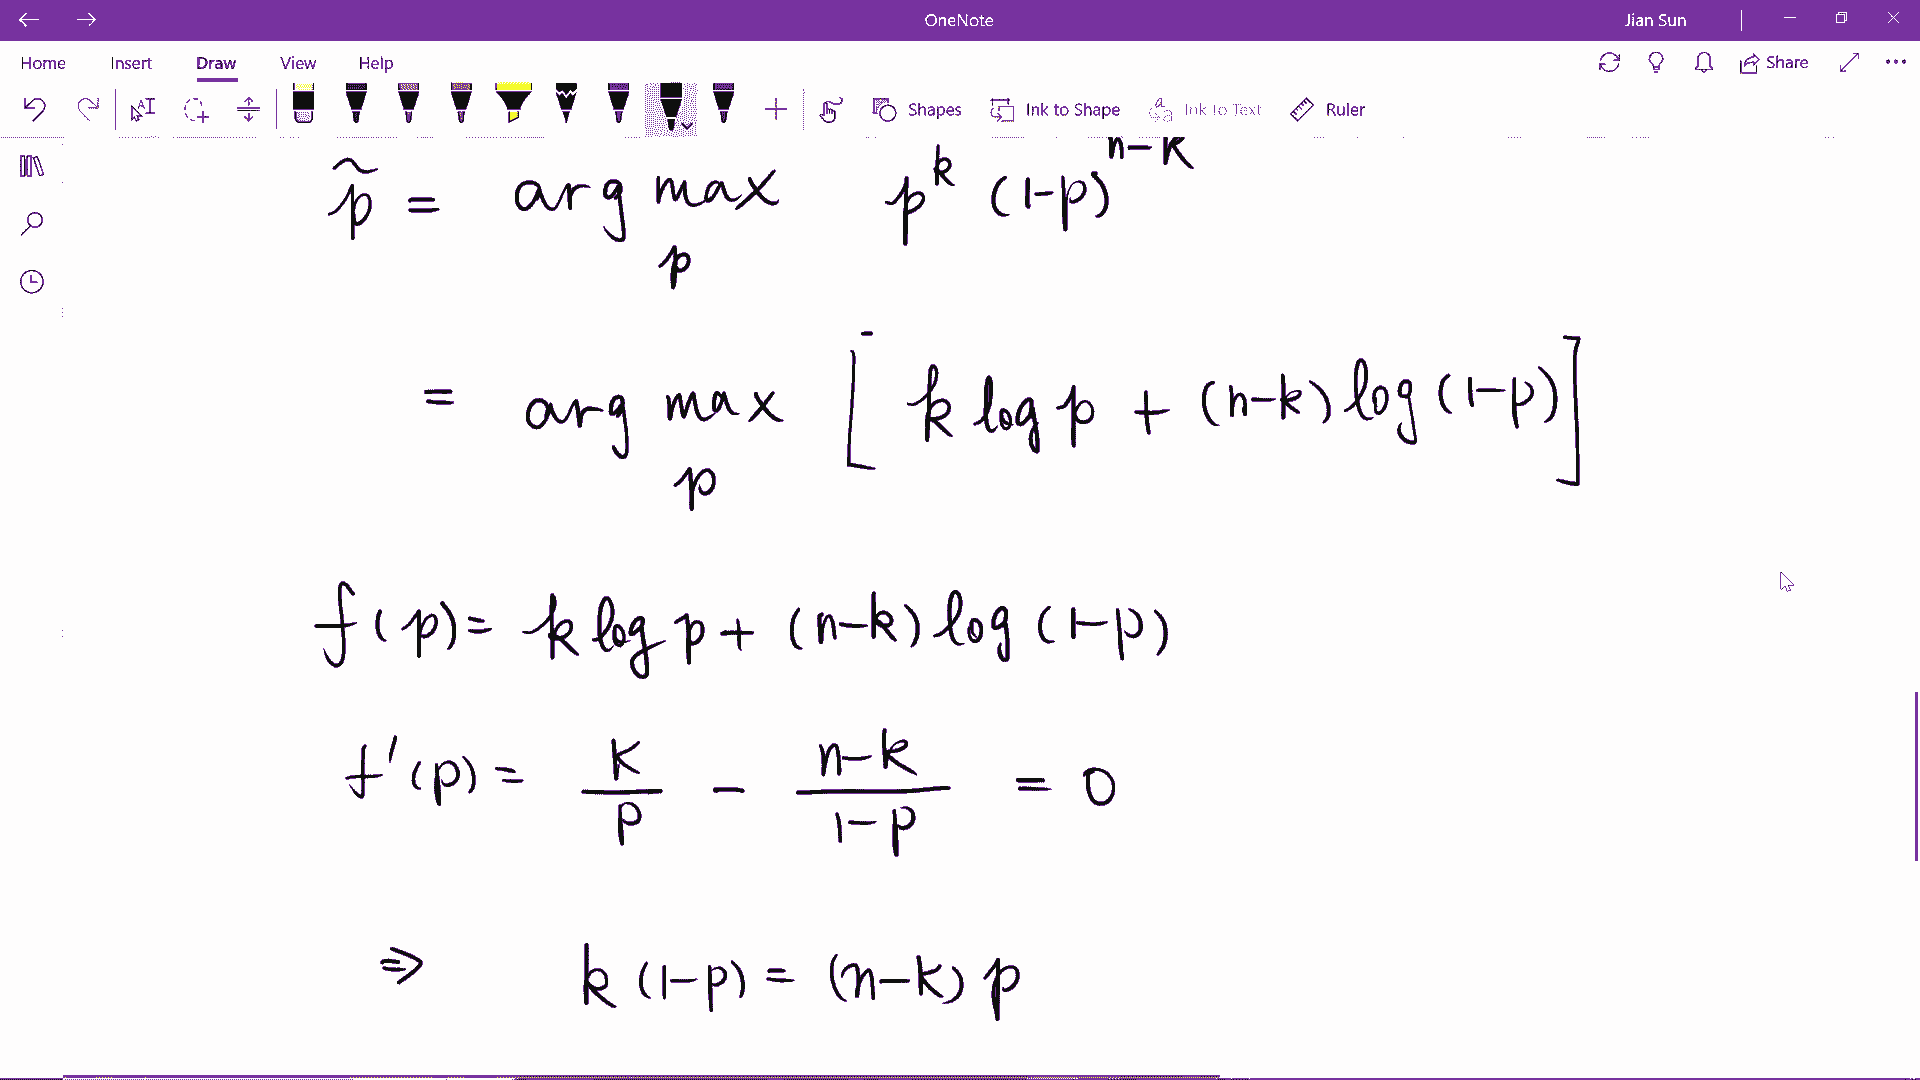 OneNote
Jian Sun
Home Insert Draw View Help
Share
Shapes Ink to Shape Ink to Text Ruler
p̃ = arg max_p p^k (1-p)^{n-k}
= arg max_p [ k log p + (n-k) log (1-p) ]
f(p) = k log p + (n-k) log (1-p)
f'(p) = k/p - (n-k)/(1-p) = 0
⇒ k (1-p) = (n-k) p